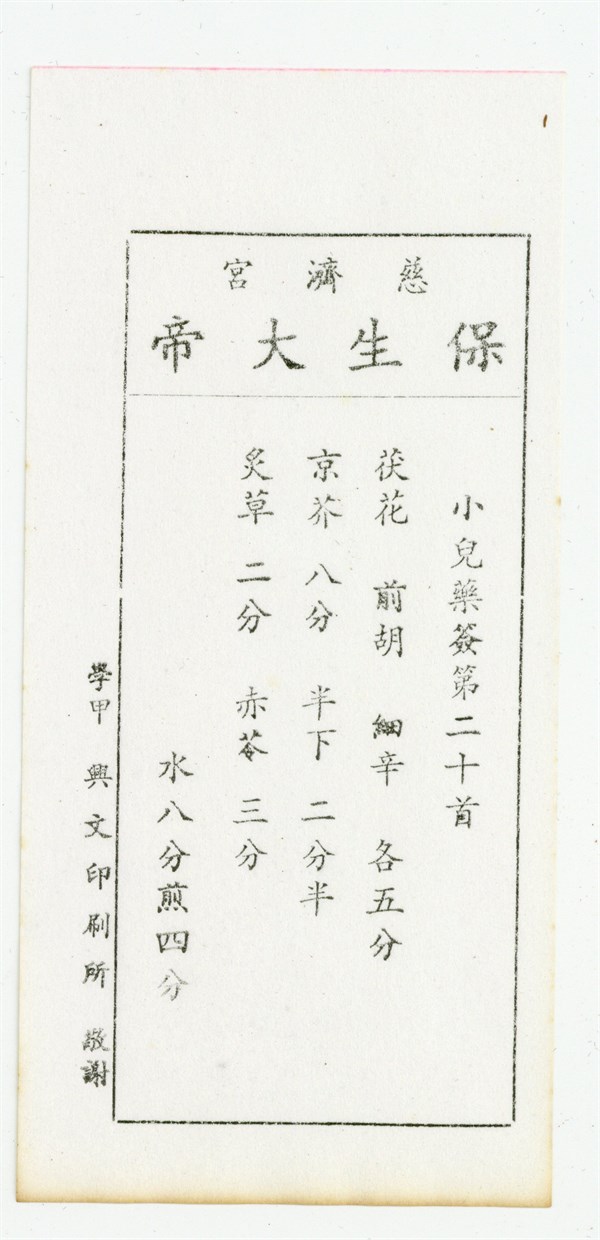 慈濟宮
保生大帝
小兒藥簽第二十首
茯花 前胡 細辛 各五分
京芥 八分 半下 二分半
炙草 二分 赤苓 三分
水八分煎四分
學甲 興文印刷所 敬謝